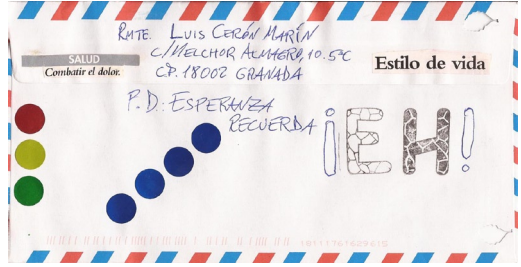 RMTE. LUIS CERÓN MARÍN
C/MELCHOR ALMAGRO, 10. 5ºC
C.P. 18002 GRANADA
SALUD
Combatir el dolor.
Estilo de vida
P.D.: ESPERANZA
RECUERDA
¡EH!
18111761629615